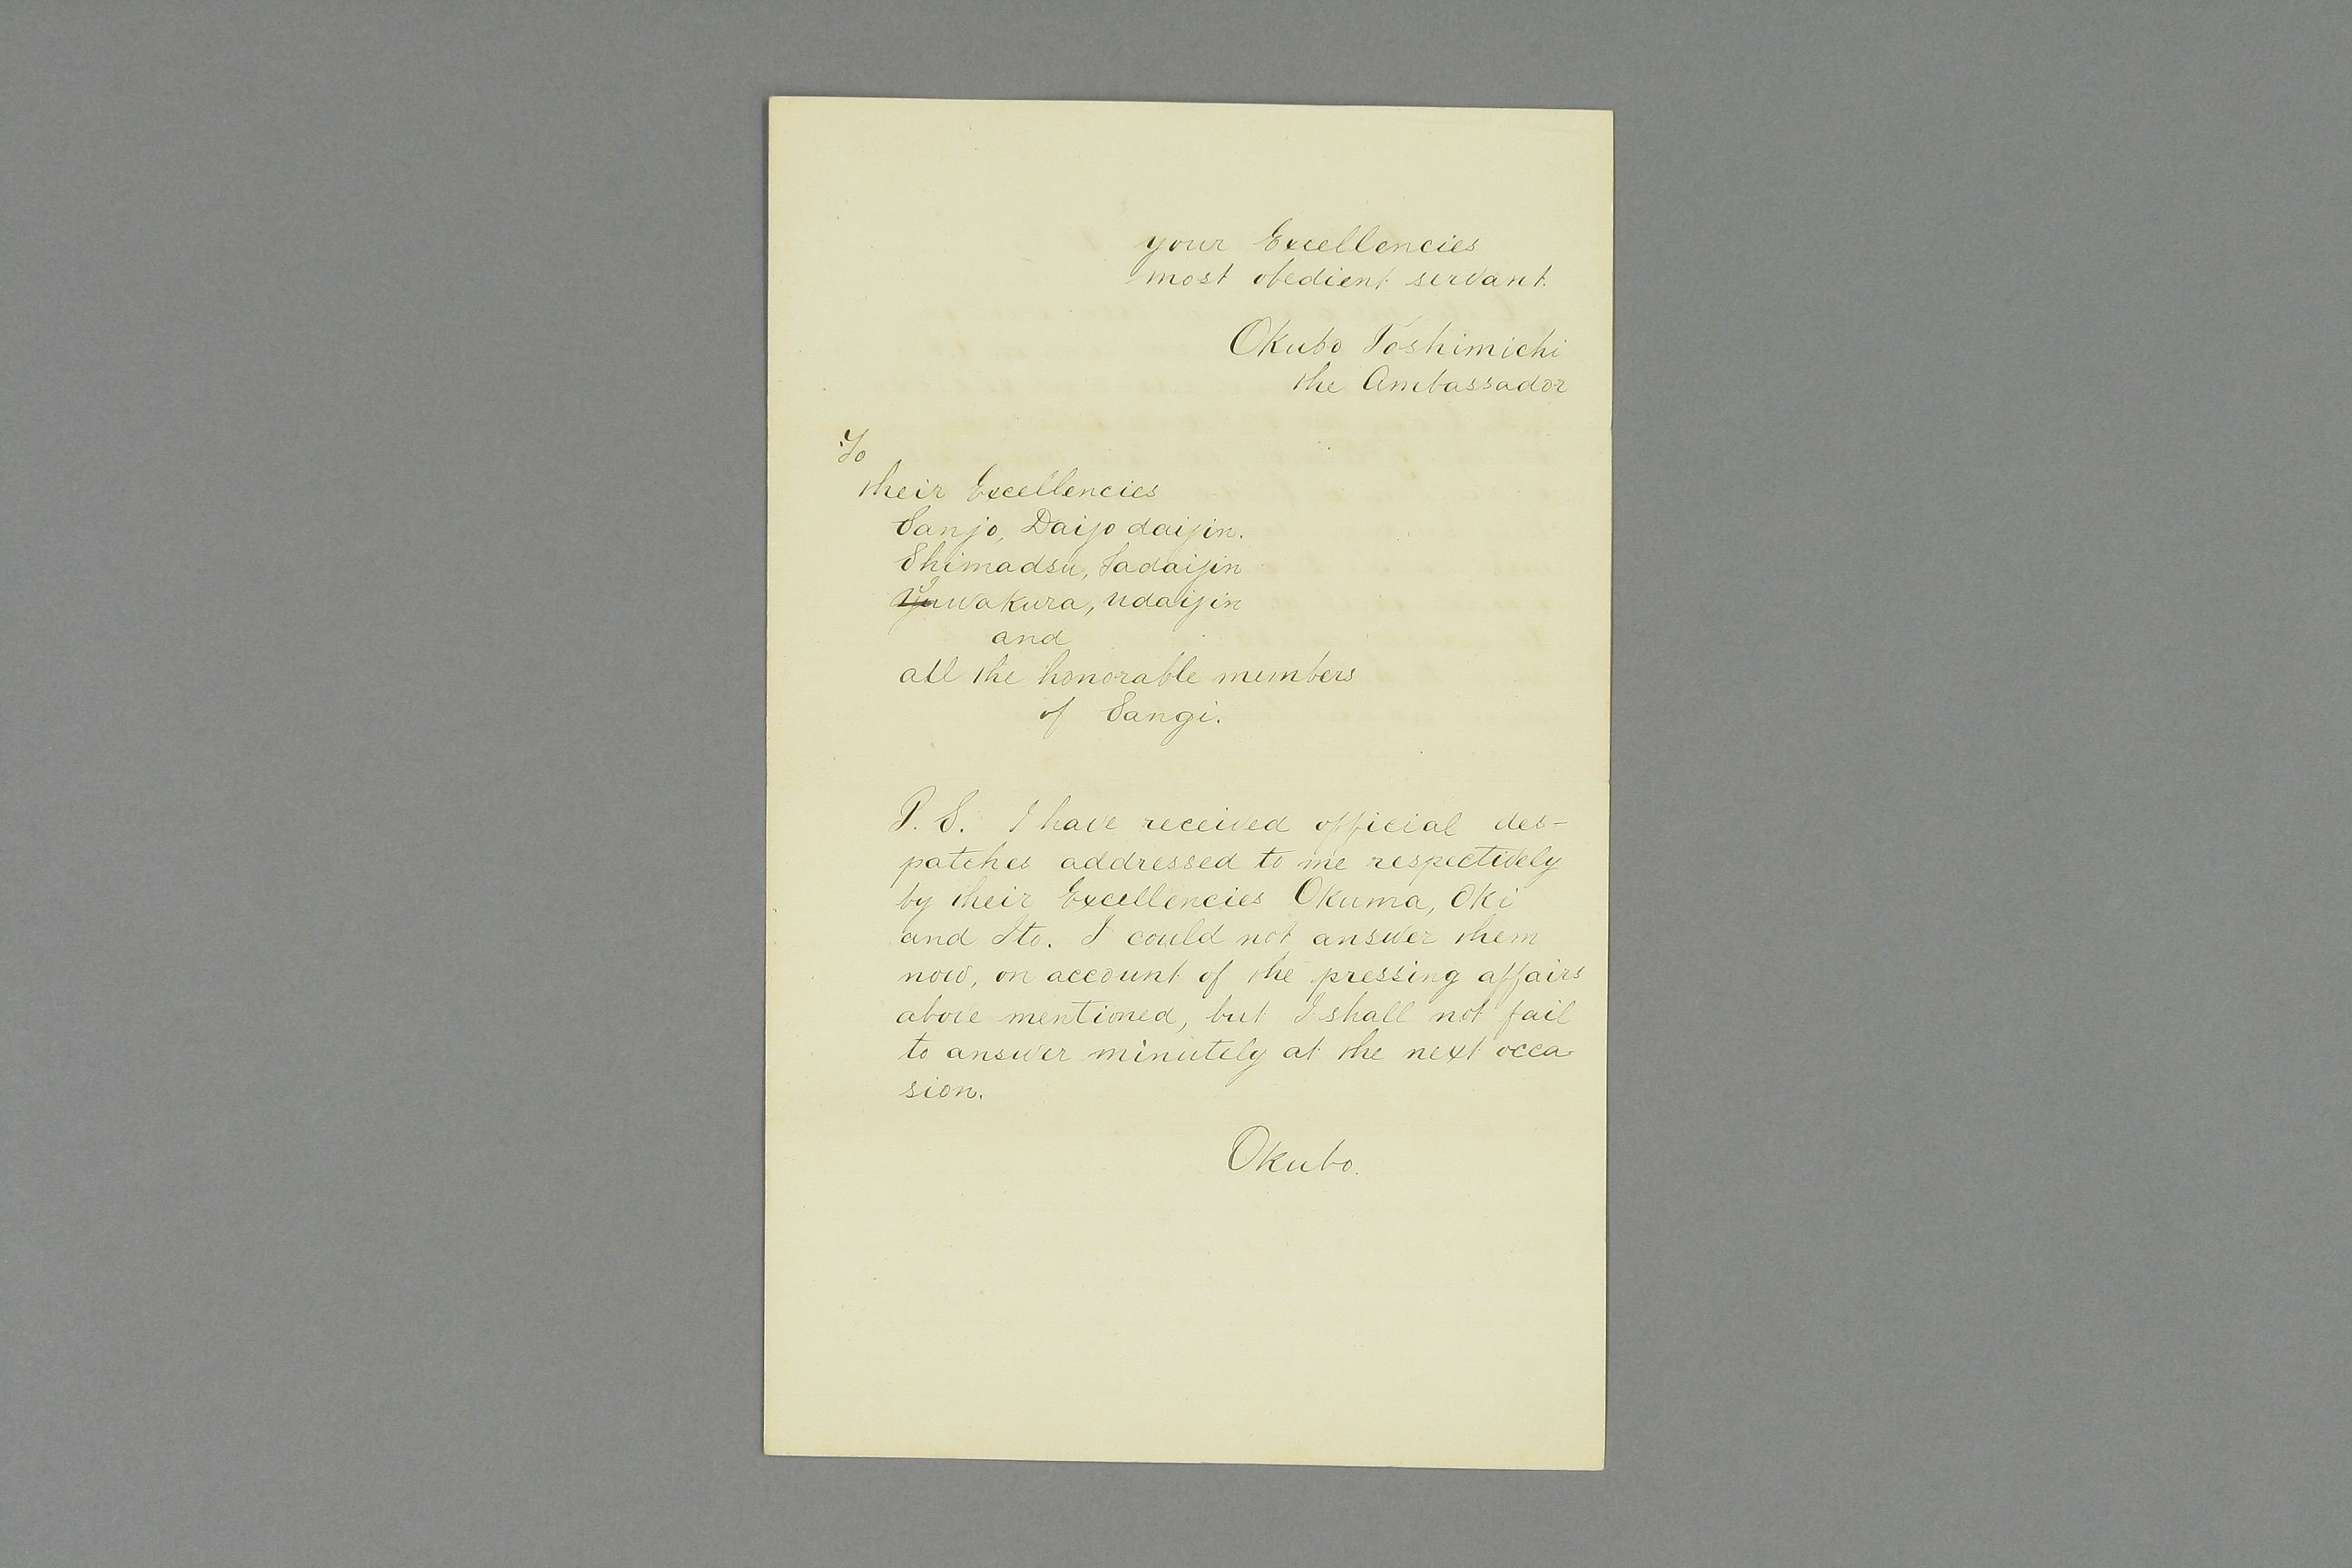 your Excellencies
most obedient servant.
Okubo Toshimichi
the Ambassador
To
their Excellencies
Sanjo, Daijo daijin.
Shimadsu, Sadaijin
Iwakura, Udaijin
and
all the honorable members
of Sangi.
P. S. I have received official des-
patches addressed to me respectively
by their Excellencies Okuma, Oki
and Ito. I could not answer them
now, on account of the pressing affairs
above mentioned, but I shall not fail
to answer minutely at the next occa
sion.
Okubo.